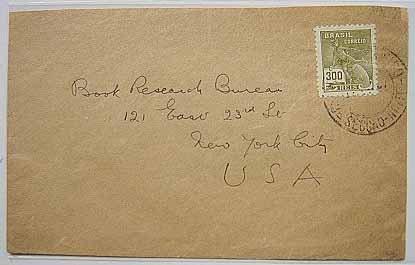 BRASIL
CORREIO
300
REIS
Book Research Bureau
121 East 23rd St
New York City
U S A